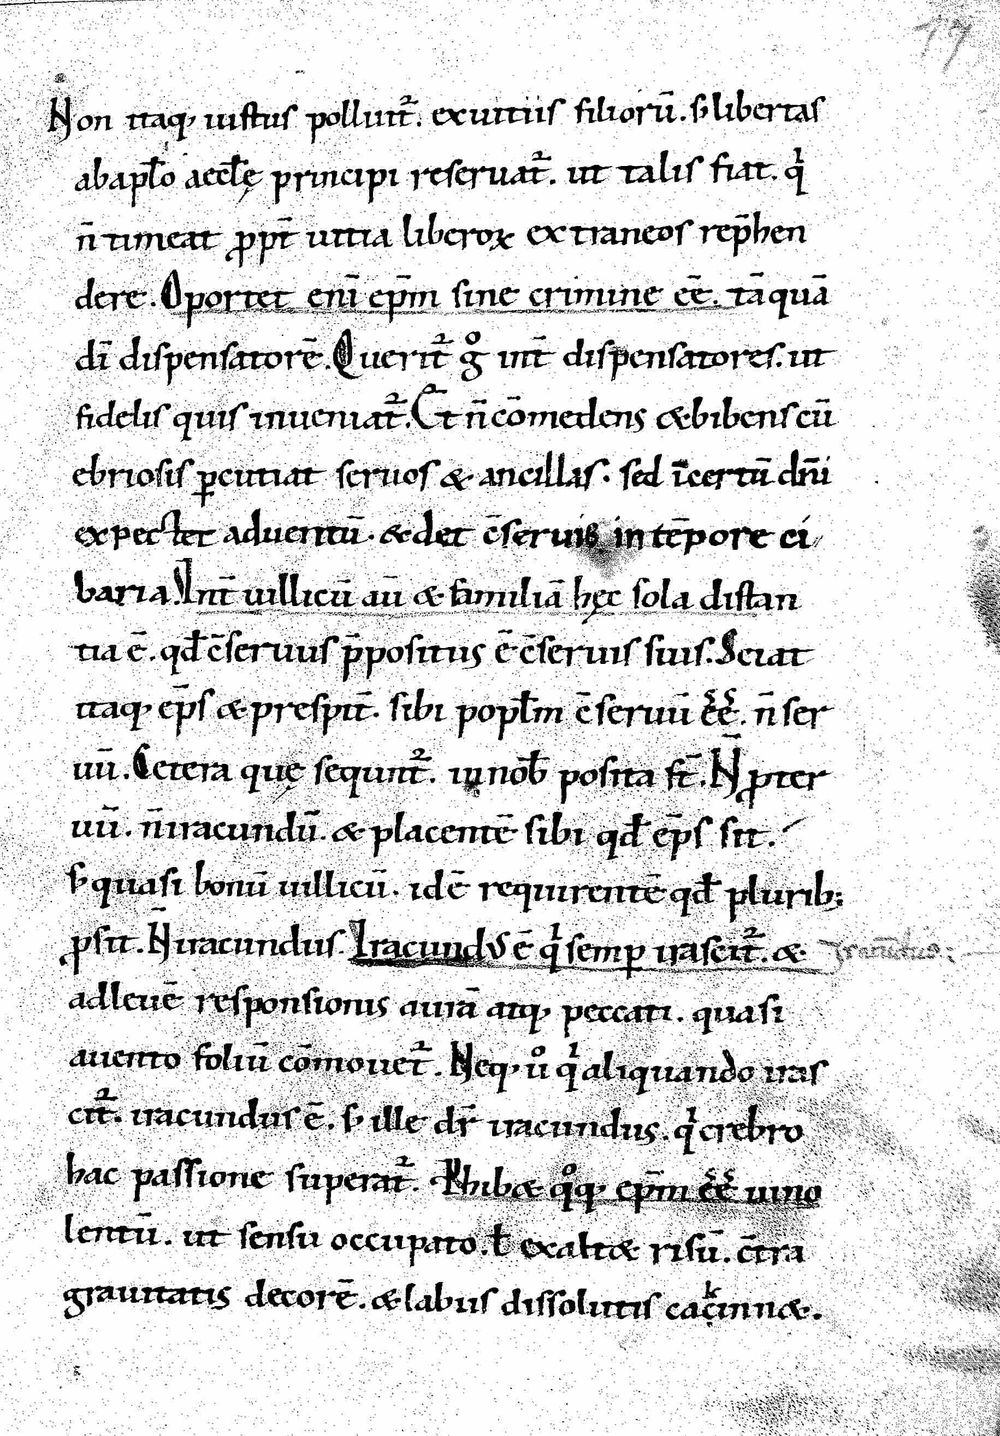 17
Non itaq; iustus polluit᷑. ex uitiis filiorū. s; libertas
ab apl̄o aeccl̄ę principi reseruat᷑. ut talis fiat. qͥ
n̄ timeat ꝓpt̄ uitia liberoꝝ extraneos rep̄hen
dere. Oportet enī ep̄m sine crimine eē. tāquā
dī dispensatorē. Querit᷑ gͦ int̄ dispensatores. ut
fidelis quis inueniat᷑. Et n̄ cōmedens & bibens cū
ebriosis ꝑcutiat seruos & ancillas. sed īcertū dn̄i
expectet aduentū. & det c̄seruis in tēpore ci
baria. Int̄ uillicū aū & familiā hęc sola distan
tia ē. qđ c̄seruus p̄positus ē c̄seruis suis. Sciat
itaq; ep̄s & prespit̄. sibi popl̄m c̄seruū eē. n̄ ser
uū. Cetera quę sequnt᷑. in nob̄ posita st̄. N̄ ꝓter
uū. n̄ iracundū. & placentē sibi qđ ep̄s sit.
s; quasi bonū uillicū. idē requirentē qđ plurib;
ꝓsit. N̄ iracundus. Iracundus ē qͥ semꝑ irascit᷑. &
ad leuē responsionis aurā atq; peccati. quasi
a uento foliū cōmouet᷑. Neq; ūͦ qͥ aliquando iras
cit᷑. iracundus ē. s; ille dr̄ iracundus. qͥ crebro
hac passione superat᷑. Phibæ qͦq; ep̄m eē uino
lentū. ut sensu occupato. ł exaltæ risū. c̄tra
grauitatis decorē. & labiis dissolutis cacinnæ.